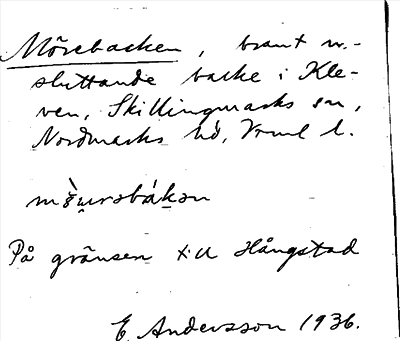 Mörebacken, brant v.-
sluttande backe i Kle-
ven, Skillingmarks sn,
Nordmarks hd, Vrml l.
På gränsen till Hångstad
E. Andersson 1936.